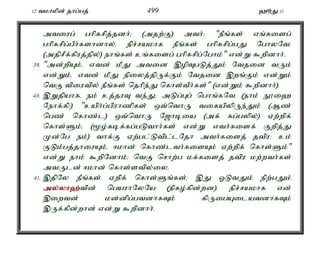 12 வமாமின் தாப்பத் 499 ஹூது 11
அவரைப் பரிகசித்தனர்; (அதற்கு) அவர்: "நீங்கள் எங்களைப்
பரிகசிப்பீர்களானால், நிச்சயமாக நீங்கள் பரிகசிப்பது போலவே,
(அதிசீக்கிரத்தில்) நாங்கள் உங்களைப் பரிகசிப்போம்" என்று கூறினார்.
39. "அன்றியும், எவன் மீது அவனை இழிவுபடுத்தும் வேதனை வரும்
என்றும், எவன் மீது நிலைத்திருக்கும் வேதனை இறங்கும் என்றும்
வெகு விரைவில் நீங்கள் தெரிந்து கொள்வீர்கள்" (என்றும் கூறினார்).
40. இறுதியாக, நம் உத்தரவு வந்து, அடுப்புப் பொங்கவே, (நாம் நூஹை
நோக்கி) "உயிர்ப்பிராணிகள் ஒவ்வொரு வகையிலிருந்தும் (ஆண்
பெண் கொண்ட) ஒவ்வொரு ஜோடியை (அக் கப்பலில்) ஏற்றிக்
கொள்ளும்; (மூழ்கடிக்கப்படுவார்கள் என்று எவர்களைக் குறித்து
முன்பே நம்) வாக்கு ஏற்பட்டுவிட்டதோ அவர்களைத் தவிர; உம்
குடும்பத்தாரையும், ஈமான் கொண்டவர்களையும் ஏற்றிக் கொள்ளும்"
என்று நாம் கூறினோம்; வெகு சொற்ப மக்களைத் தவிர மற்றவர்கள்
அவருடன் ஈமான் கொள்ளவில்லை.
41. இதிலே நீங்கள் ஏறிக் கொள்ளுங்கள்; இது ஓடுவதும் நிற்பதும்
அல்லாஹ்வின் பெயராலேயே (நிகழ்கின்றன) நிச்சயமாக என்
இறைவன் மன்னிப்பவனாகவும் கிருபையுடையவனாகவும்
இருக்கின்றான் என்று கூறினார்.